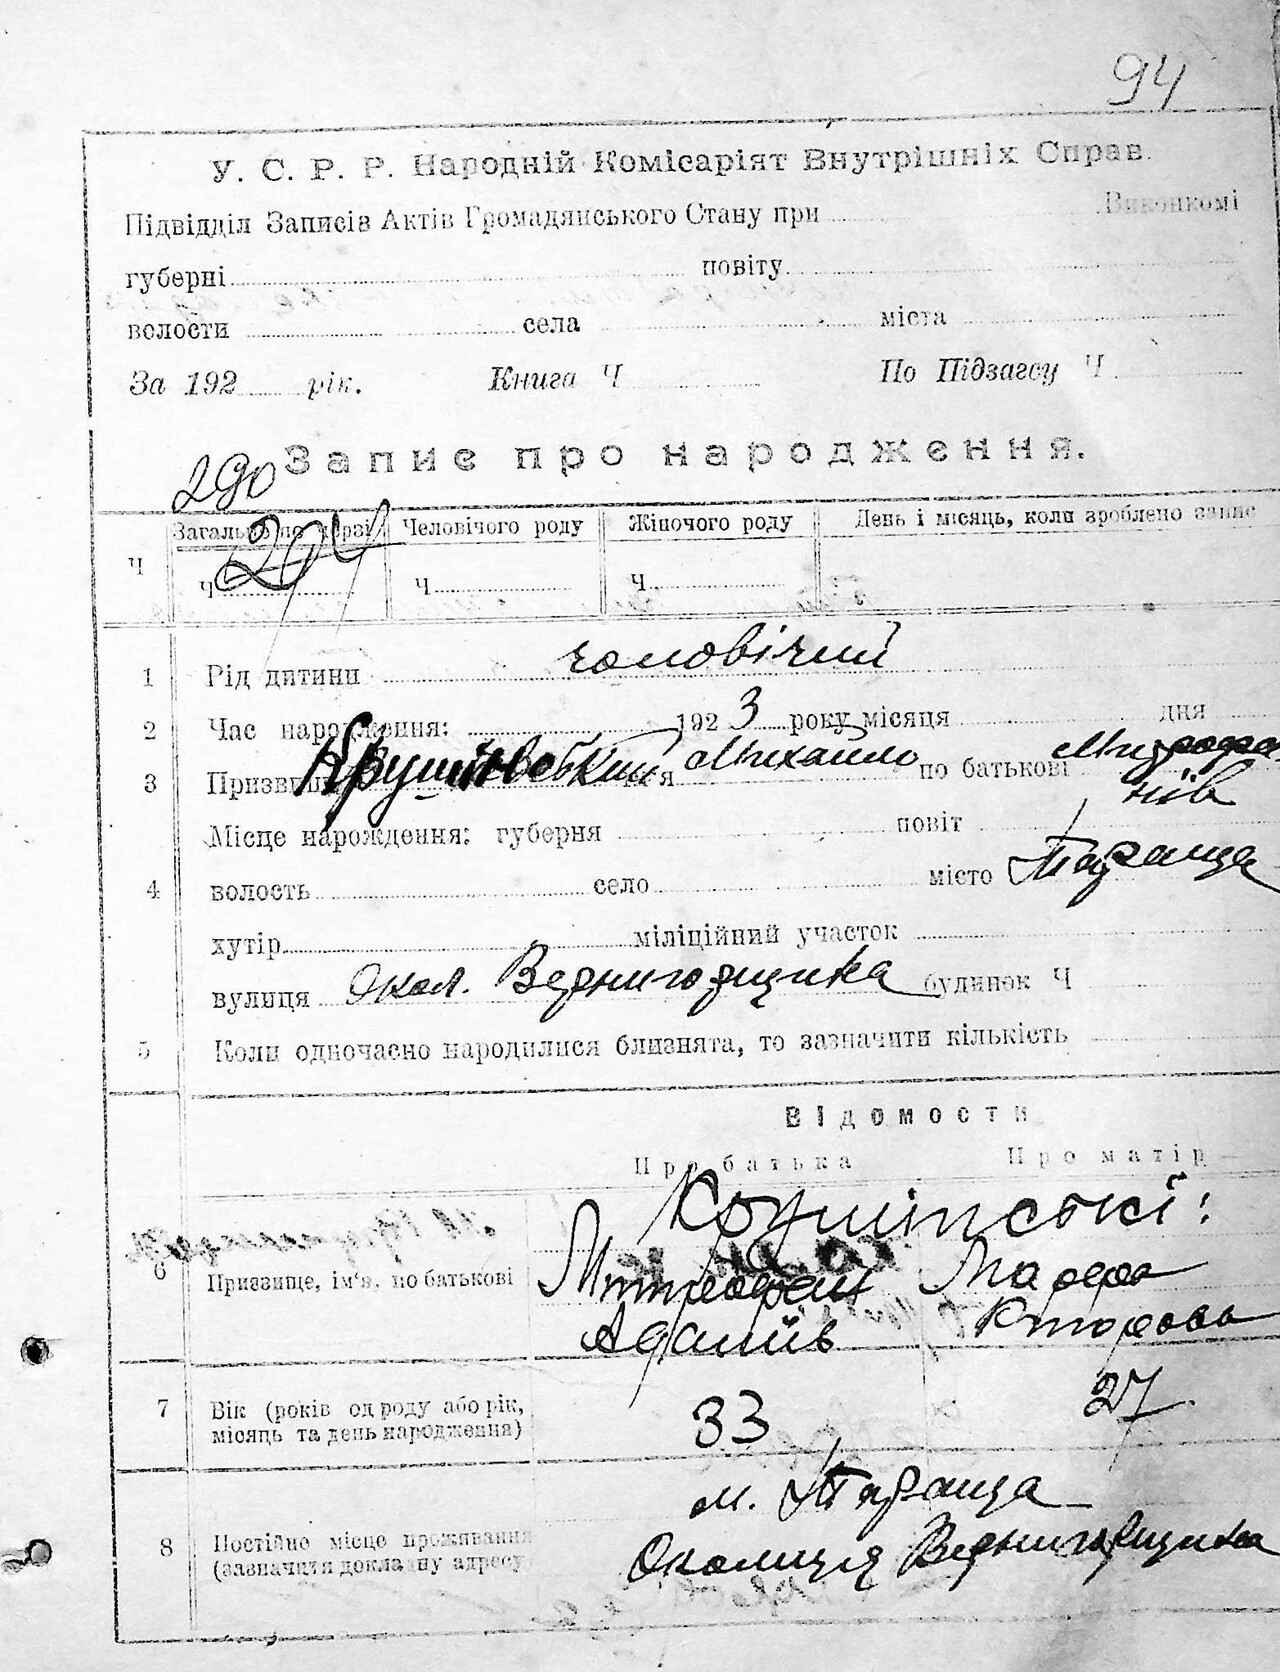 94
У. С. Р. Р. Народній Комісаріят Внутрішніх Справ.
Підвідділ Записів Актів Громадянського Стану при Виконкомі
губерні повіту
волости села міста
За 192 рік. Книга Ч По Підзагсу Ч
Запис про народження.
290
Загальної по черзі Человічого роду Жіночого роду День і місяць, коли зроблено запис
Ч Ч 204 Ч Ч
1 Рід дитини чоловічий
2 Час народження: 1923 року місяця дня
3 Призвище Михайло по батькові Митрофа-
нів
Місце народження: губерня повіт
4 волость село місто Тараща
хутір міліційний участок
вулиця Окол. Вернигорщина будинок Ч
5 Коли одночасно народилися близнята, то зазначити кількість
Відомости
Про батька Про матір
6 Призвище, ім'я, по батькові Митрофан
Адамів
7 Вік (років од роду або рік, 33 27
місяць та день народження)
м. Тараща
8 Постійне місце проживання
(зазначити докладну адресу
Околиця Вернигорщина